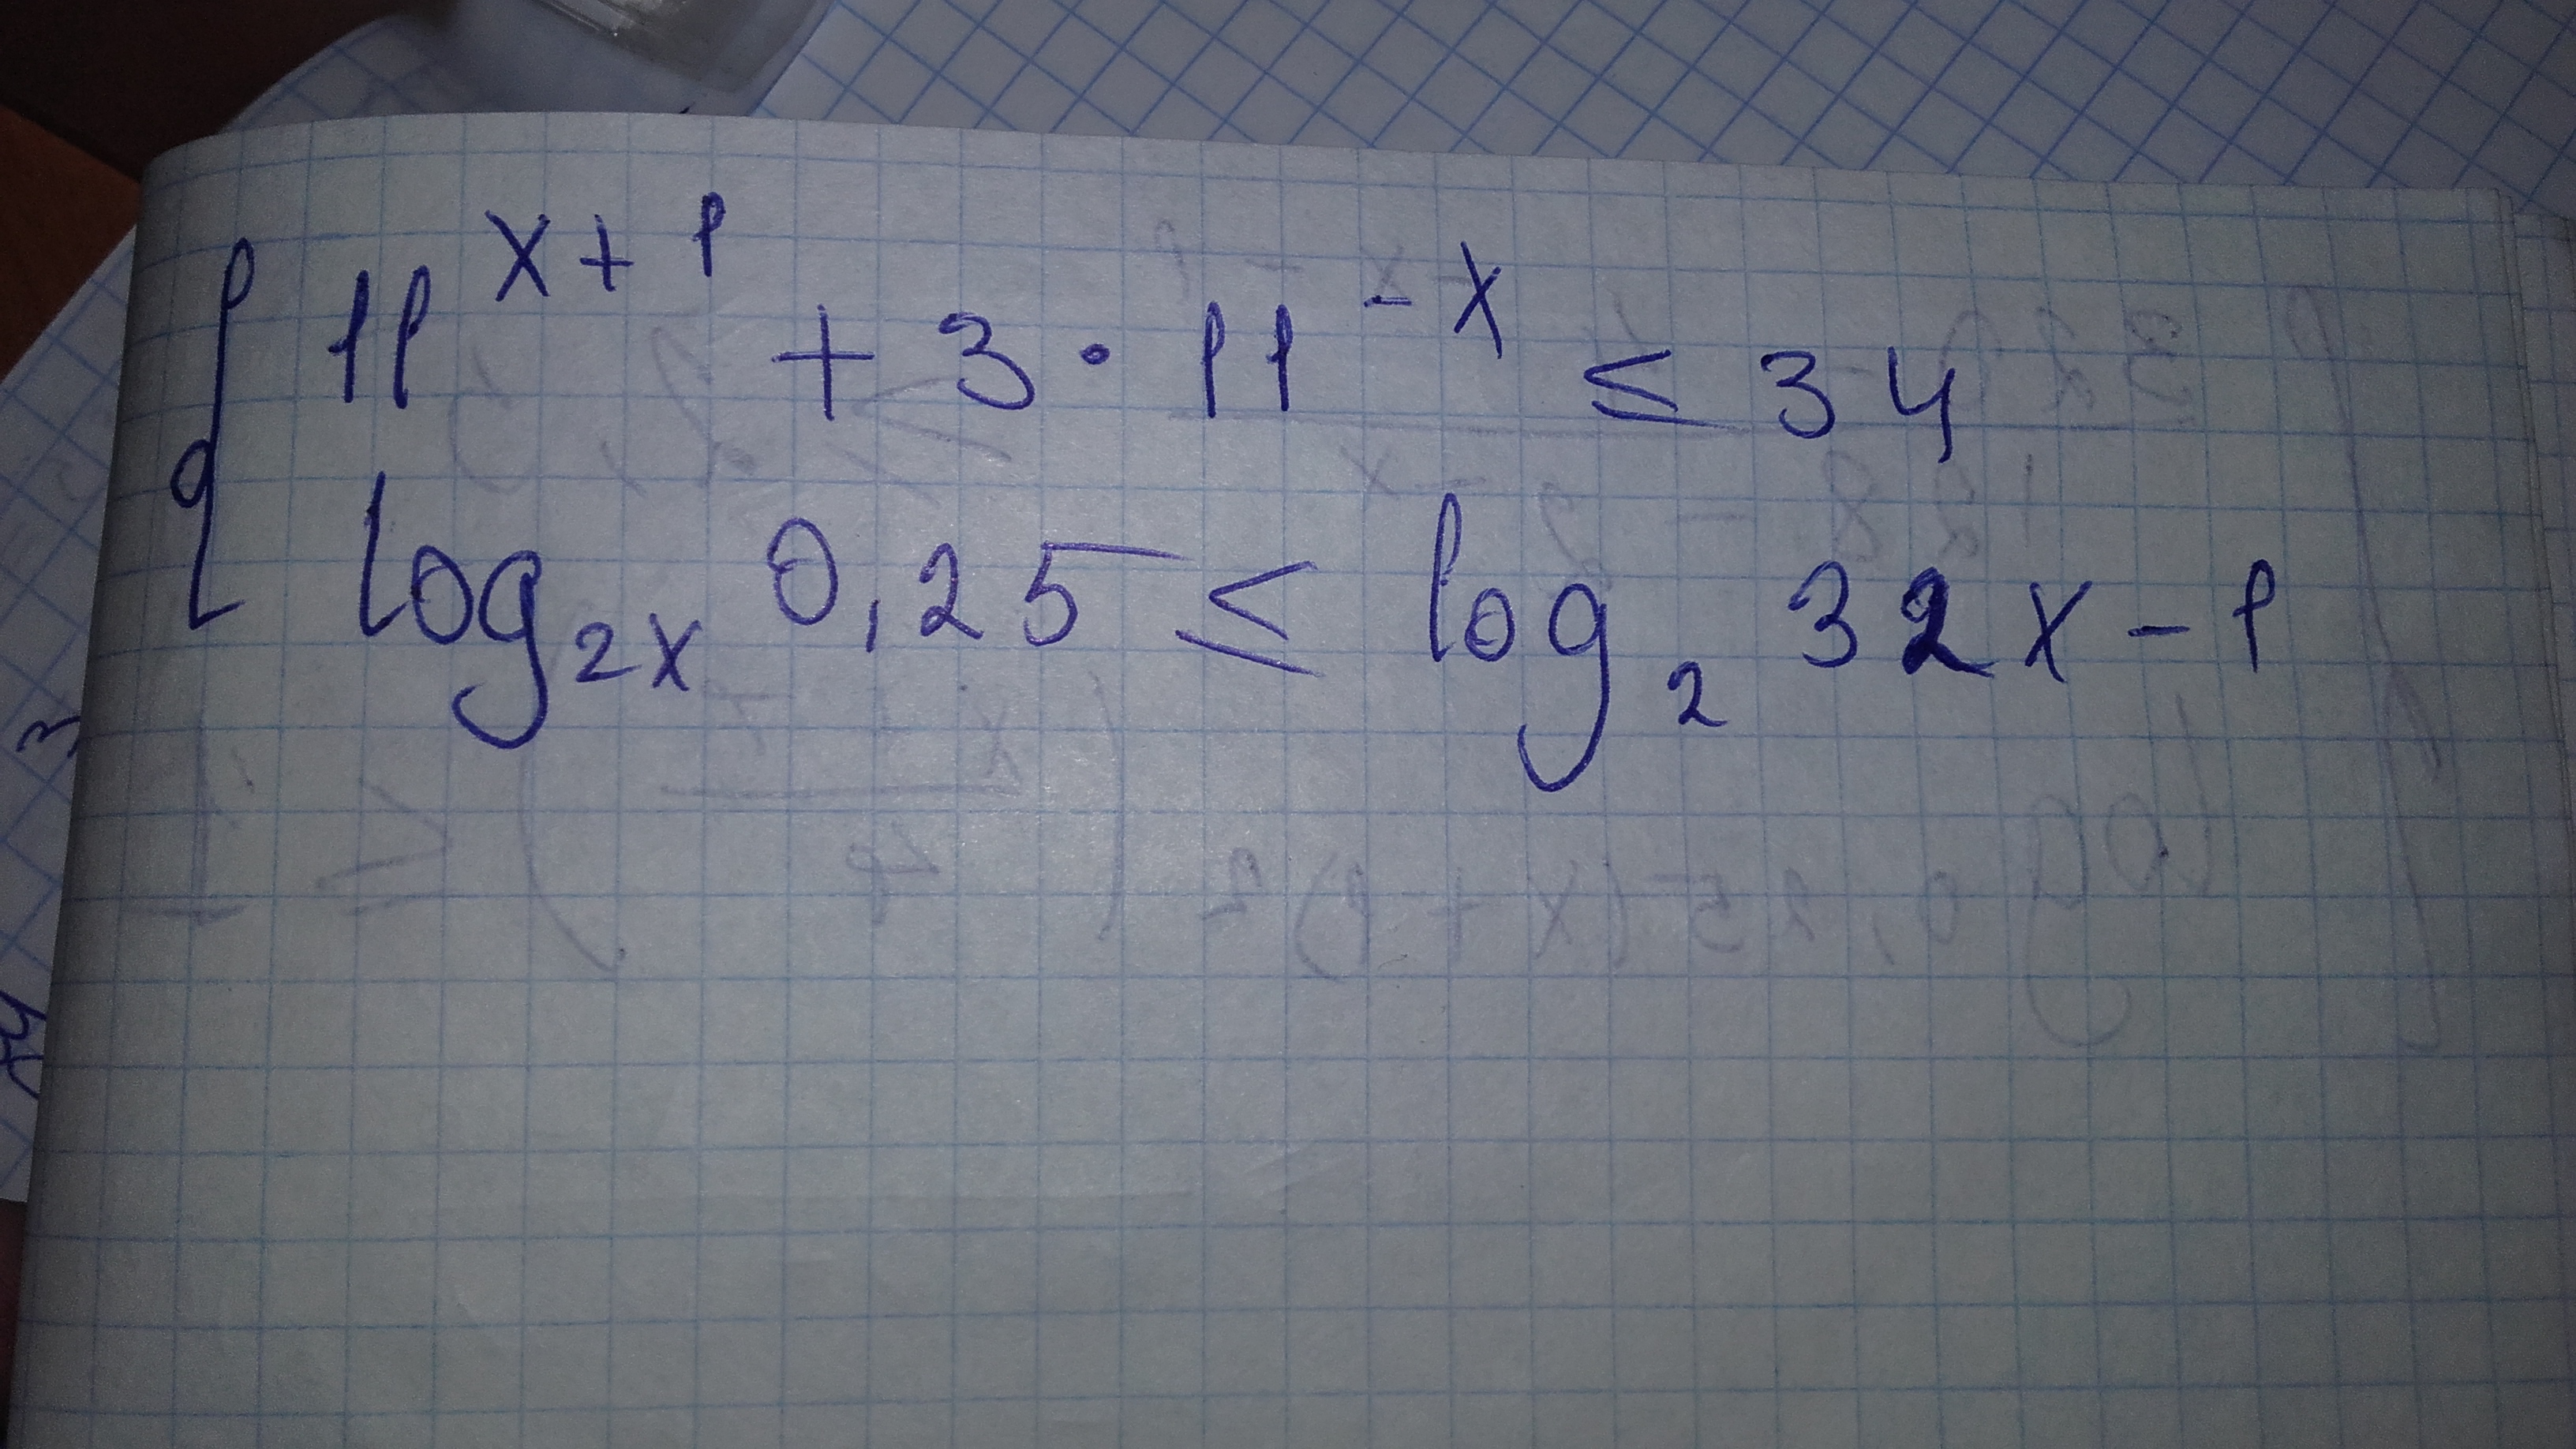 11^{x+1} + 3 · 11^{-x} ≤ 34
log_{2x} 0,25 ≤ log_2 32x - 1